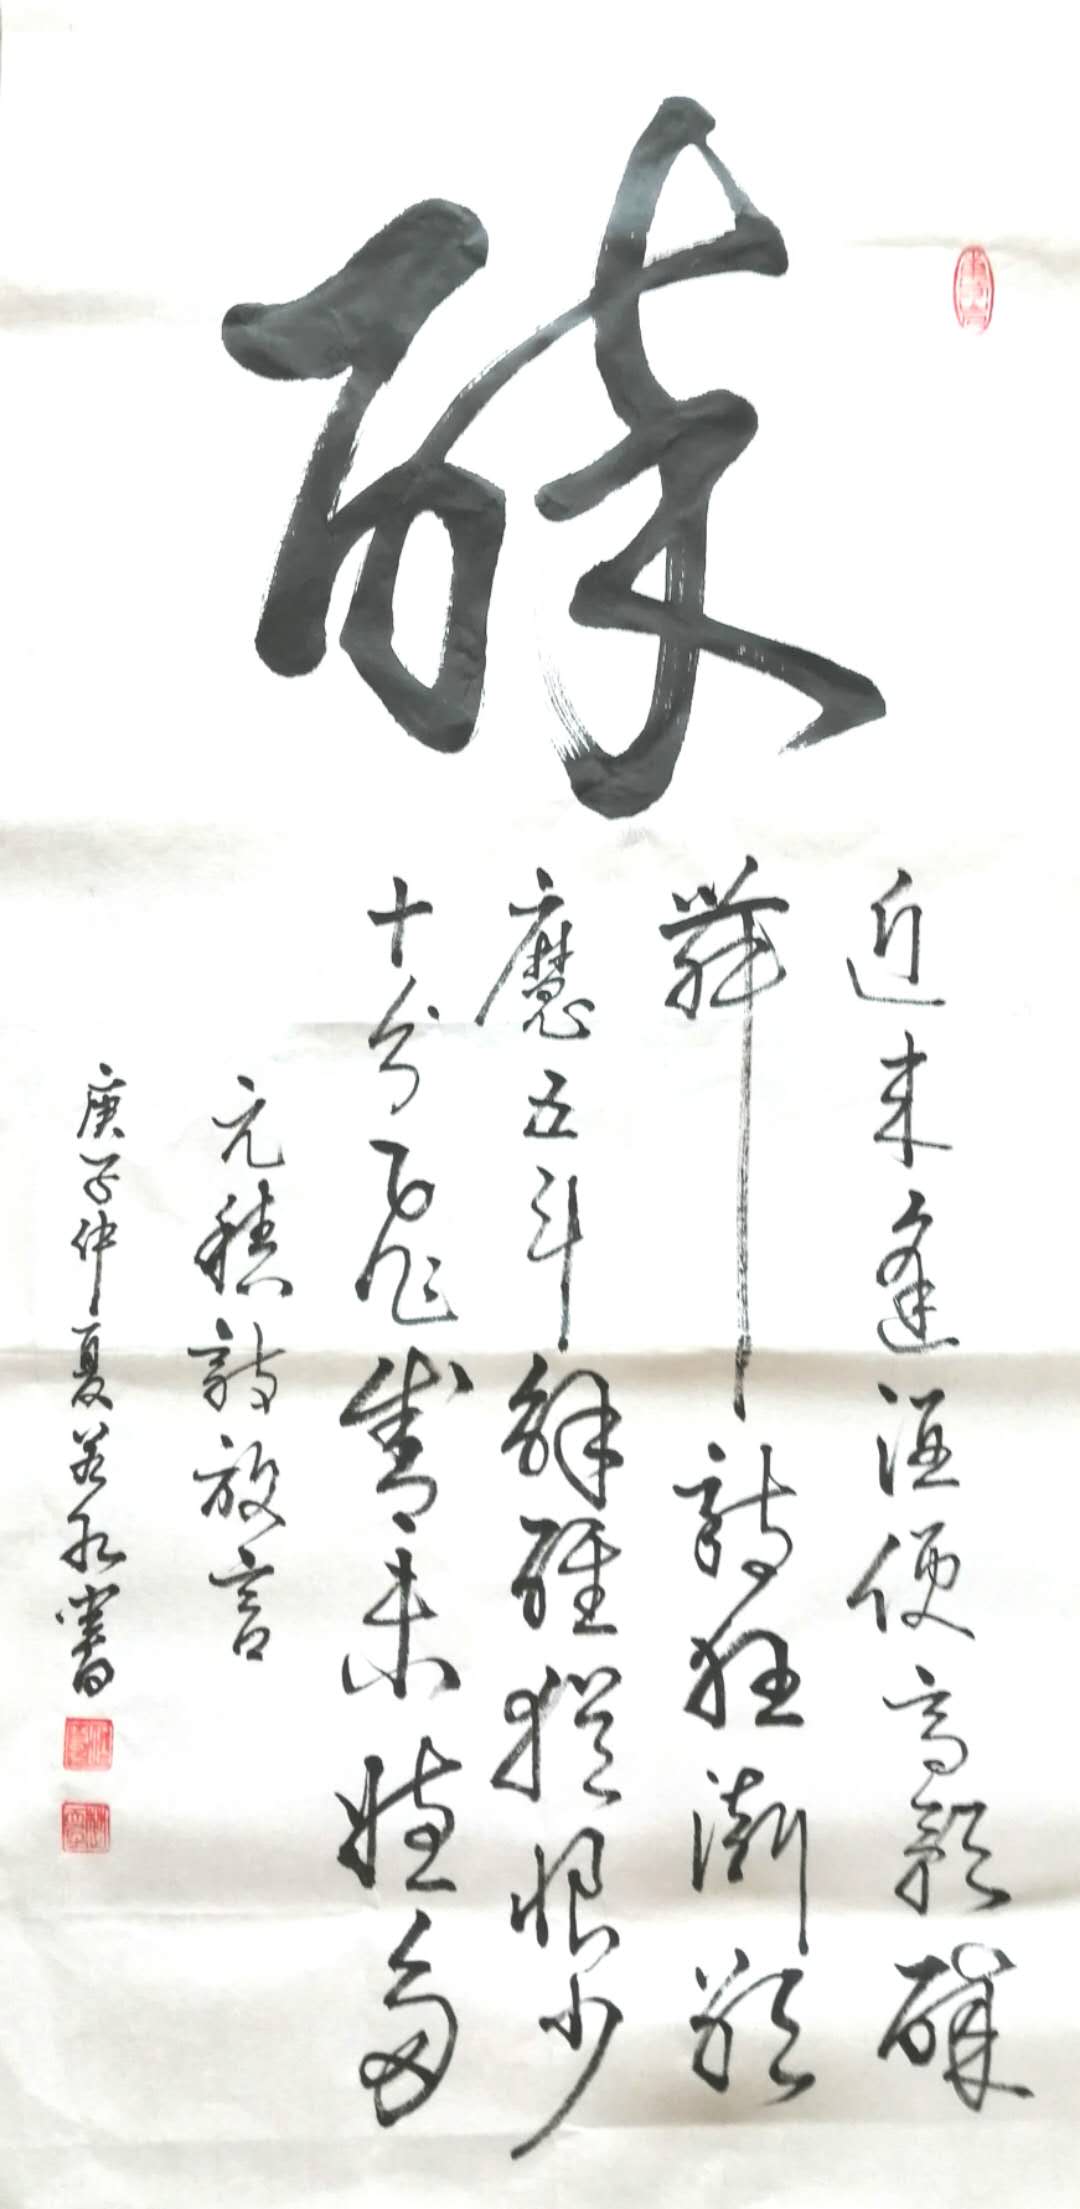 醉
近来逢酒便高歌醉
舞詩狂漸欲
魔五斗解酲猶恨少
十分飛盞未嫌多
元稹詩放言
庚子仲夏若水書